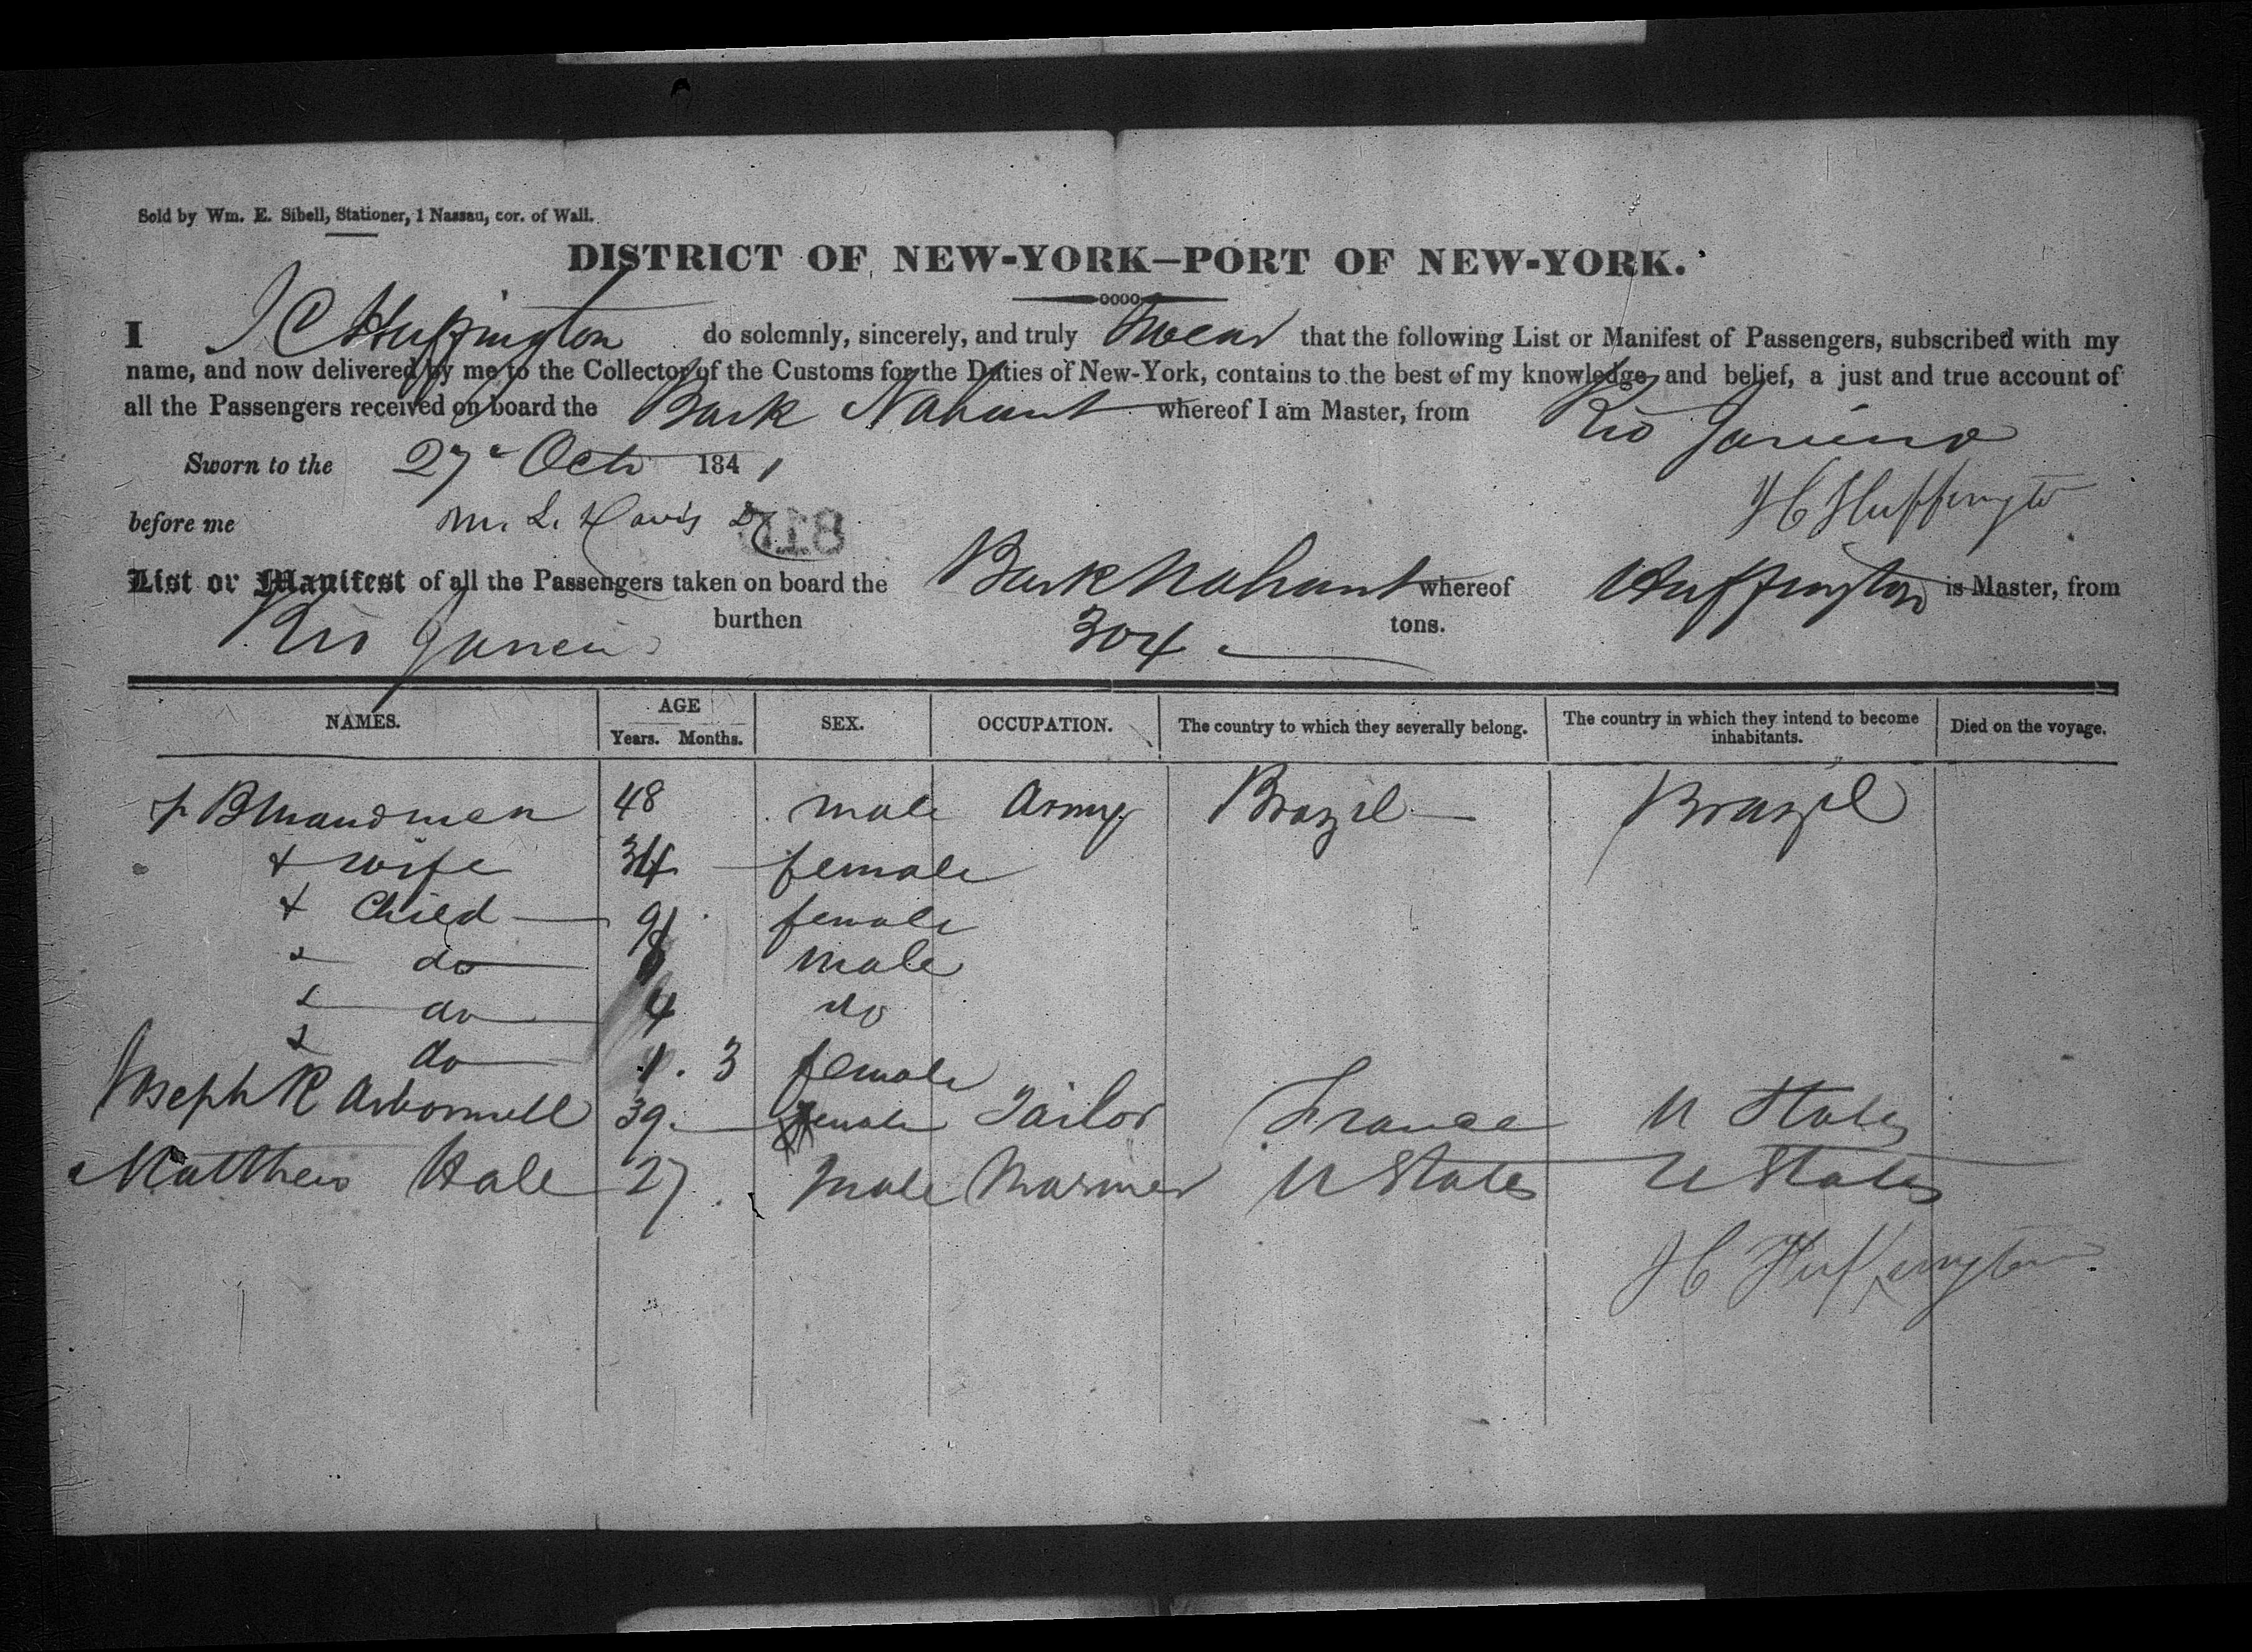 Sold by Wm. E. Sibell, Stationer, 1 Nassau, cor. of Wall.
DISTRICT OF NEW-YORK—PORT OF NEW-YORK.
I J C Huffington do solemnly, sincerely, and truly swear that the following List or Manifest of Passengers, subscribed with my
name, and now delivered by me to the Collector of the Customs for the Duties of New-York, contains to the best of my knowledge and belief, a just and true account of
all the Passengers received on board the Bark Nahant whereof I am Master, from Rio Janeiro
Sworn to the 27 Oct 1841
J C Huffington
before me M. L. Davis
List or Manifest of all the Passengers taken on board the Bark Nahant whereof Huffington is Master, from
Rio Janeiro burthen 304 tons.
NAMES. AGE Years. Months. SEX. OCCUPATION. The country to which they severally belong. The country in which they intend to become inhabitants. Died on the voyage.
48 male Army Brazil Brazil
& wife 34 female
& Child 9 female
& do 8 male
& do 4 do
& do 1. 3 female
Joseph R 39 Tailor France U States
Matthew Hale 27 male Mariner U States U States
J C Huffington